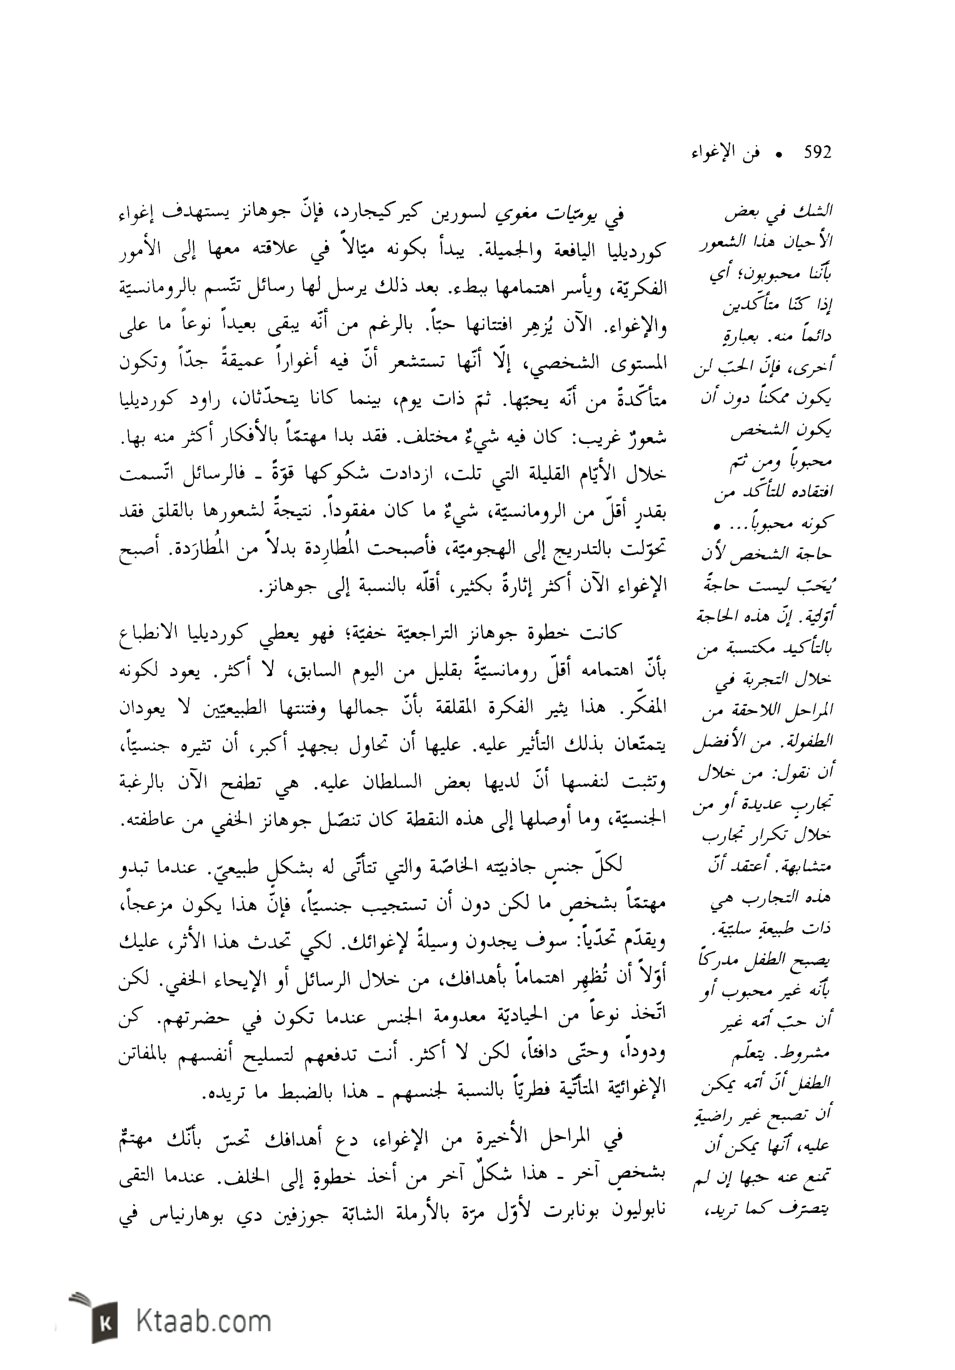 592 • فن الإغواء
الشك في بعض
الأحيان هذا الشعور
بأنّنا محبوبون؛ أي
إذا كنّا متأكّدين
دائماً منه. بعبارةٍ
أخرى، فإنّ الحبّ لن
يكون ممكناً دون أن
يكون الشخص
محبوباً ومن ثمّ
افتقاده للتأكّد من
كونه محبوباً... •
حاجة الشخص لأن
يُحَبّ ليست حاجةً
أوّليّة. إنّ هذه الحاجة
بالتأكيد مكتسبة من
خلال التجربة في
المراحل اللاحقة من
الطفولة. من الأفضل
أن نقول: من خلال
تجاربٍ عديدة أو من
خلال تكرار تجارب
متشابهة. أعتقد أنّ
هذه التجارب هي
ذات طبيعةٍ سلبيّة.
يصبح الطفل مدركاً
بأنّه غير محبوب أو
أن حبّ أمّه غير
مشروط. يتعلّم
الطفل أنّ أمّه يمكن
أن تصبح غير راضيةٍ
عليه، أنّها يمكن أن
تمنع عنه حبّها إن لم
يتصرّف كما تريد،
في يوميّات مغوي لسورين كيركيجارد، فإنّ جوهانز يستهدف إغواء
كورديليا اليافعة والجميلة. يبدأ بكونه ميّالاً في علاقته معها إلى الأمور
الفكريّة، ويأسر اهتمامها ببطء. بعد ذلك يرسل لها رسائل تتّسم بالرومانسيّة
والإغواء. الآن يُزهِر افتتانها حبّاً. بالرغم من أنّه يبقى بعيداً نوعاً ما على
المستوى الشخصي، إلّا أنّها تستشعر أنّ فيه أغواراً عميقةً جدّاً وتكون
متأكّدةً من أنّه يحبّها. ثمّ ذات يوم، بينما كانا يتحدّثان، راود كورديليا
شعورٌ غريب: كان فيه شيءٌ مختلف. فقد بدا مهتمّاً بالأفكار أكثر منه بها.
خلال الأيّام القليلة التي تلت، ازدادت شكوكها قوّةً - فالرسائل اتّسمت
بقدرٍ أقلّ من الرومانسيّة، شيءٌ ما كان مفقوداً. نتيجةً لشعورها بالقلق فقد
تحوّلت بالتدريج إلى الهجوميّة، فأصبحت المُطارِدة بدلاً من المُطارَدة. أصبح
الإغواء الآن أكثر إثارةً بكثير، أقلّه بالنسبة إلى جوهانز.
كانت خطوة جوهانز التراجعيّة خفيّة؛ فهو يعطي كورديليا الانطباع
بأنّ اهتمامه أقلّ رومانسيّةً بقليل من اليوم السابق، لا أكثر. يعود لكونه
المفكّر. هذا يثير الفكرة المقلقة بأنّ جمالها وفتنتها الطبيعيّين لا يعودان
يتمتّعان بذلك التأثير عليه. عليها أن تحاول بجهدٍ أكبر، أن تثيره جنسيّاً،
وتثبت لنفسها أنّ لديها بعض السلطان عليه. هي تطفح الآن بالرغبة
الجنسيّة، وما أوصلها إلى هذه النقطة كان تنصّل جوهانز الخفي من عاطفته.
لكلّ جنسٍ جاذبيّته الخاصّة والتي تتأتّى له بشكلٍ طبيعيّ. عندما تبدو
مهتمّاً بشخصٍ ما لكن دون أن تستجيب جنسيّاً، فإنّ هذا يكون مزعجاً،
ويقدّم تحدّياً: سوف يجدون وسيلةً لإغوائك. لكي تحدث هذا الأثر، عليك
أوّلاً أن تُظهِر اهتماماً بأهدافك، من خلال الرسائل أو الإيحاء الخفي. لكن
اتّخذ نوعاً من الحياديّة معدومة الجنس عندما تكون في حضرتهم. كن
ودوداً، وحتّى دافئاً، لكن لا أكثر. أنت تدفعهم لتسليح أنفسهم بالمفاتن
الإغوائيّة المتأتّية فطريّاً بالنسبة لجنسهم - هذا بالضبط ما تريده.
في المراحل الأخيرة من الإغواء، دع أهدافك تحسّ بأنّك مهتمٌّ
بشخصٍ آخر - هذا شكلٌ آخر من أخذ خطوةٍ إلى الخلف. عندما التقى
نابوليون بونابرت لأوّل مرّة بالأرملة الشابّة جوزفين دي بوهارنياس في
Ktaab.com